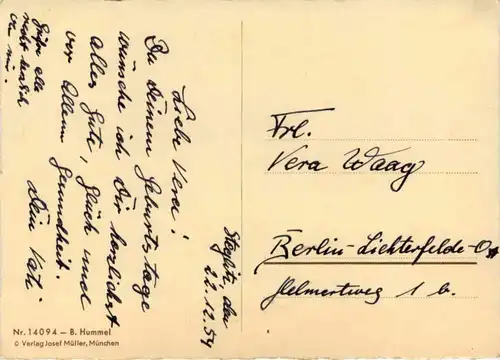 Steglitz, den
22.12.54
Liebe Vera!
Zu Deinem Geburtstage
wünsche ich Dir herzlichst
alles Gute, Glück und
vor allem Gesundheit.
Dein Vati
Grüße alle
recht herzlich
von mir.
Frl.
Vera Waag
Berlin-Lichterfelde-Ost
Helmertweg 1 b.
Nr. 14094 — B. Hummel
© Verlag Josef Müller, München